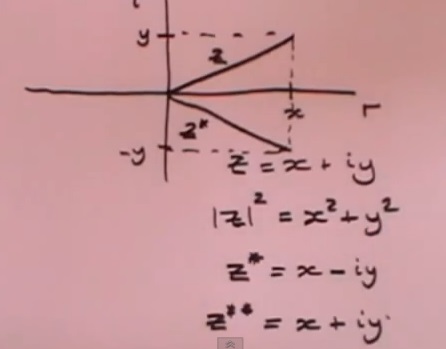 i
y
z
x
r
z*
-y
z = x + iy
|z|² = x² + y²
z* = x - iy
z** = x + iy